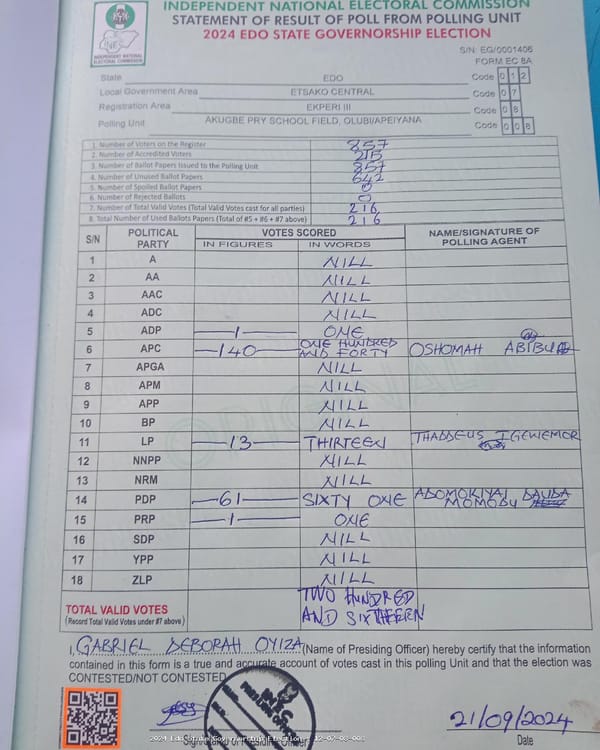 INDEPENDENT NATIONAL ELECTORAL COMMISSION
STATEMENT OF RESULT OF POLL FROM POLLING UNIT
2024 EDO STATE GOVERNORSHIP ELECTION
INDEPENDENT NATIONAL
ELECTORAL COMMISSION
S/N: EG/0001406
FORM EC 8A
State EDO Code 0 1 2
Local Government Area ETSAKO CENTRAL Code 0 7
Registration Area EKPERI III Code 0 8
Polling Unit AKUGBE PRY SCHOOL FIELD, OLUBI/APEIYANA Code 0 0 8
1. Number of Voters on the Register 857
2. Number of Accredited Voters
3. Number of Ballot Papers Issued to the Polling Unit 857
4. Number of Unused Ballot Papers 642
5. Number of Spoiled Ballot Papers 0
6. Number of Rejected Ballots 0
7. Number of Total Valid Votes (Total Valid Votes cast for all parties) 216
8. Total Number of Used Ballots Papers (Total of #5 + #6 + #7 above) 216
S/N POLITICAL PARTY VOTES SCORED NAME/SIGNATURE OF POLLING AGENT
IN FIGURES IN WORDS
1 A NILL
2 AA NILL
3 AAC NILL
4 ADC NILL
5 ADP 1 ONE
6 APC 140 ONE HUNDRED AND FORTY OSHOMAH ABIBU
7 APGA NILL
8 APM NILL
9 APP NILL
10 BP NILL
11 LP 13 THIRTEEN THADDEUS IGEWEMOR
12 NNPP NILL
13 NRM NILL
14 PDP 61 SIXTY ONE MOMODU
15 PRP 1 ONE
16 SDP NILL
17 YPP NILL
18 ZLP NILL
TOTAL VALID VOTES TWO HUNDRED
(Record Total Valid Votes under #7 above) AND SIXTHERN
I, GABRIEL DEBORAH OYIZA (Name of Presiding Officer) hereby certify that the information
contained in this form is a true and accurate account of votes cast in this polling Unit and that the election was
CONTESTED/NOT CONTESTED
ORIGINAL
21/09/2024
Date